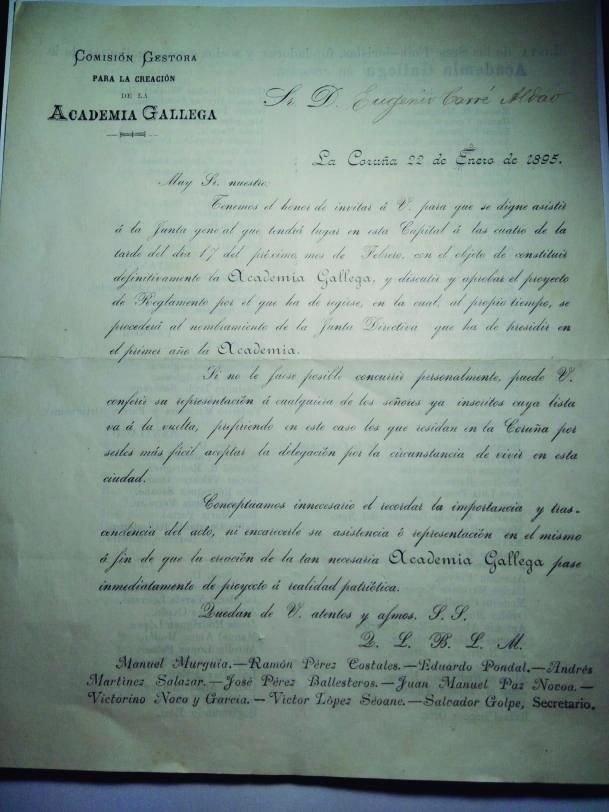 Comisión Gestora
PARA LA CREACIÓN
DE LA
Academia Gallega
Sr. D. Eugenio Carré Aldao
La Coruña 22 de Enero de 1895.
Muy Sr. nuestro:
Tenemos el honor de invitar á V. para que se digne asistir
á la Junta general que tendrá lugar en esta Capital á las cuatro de la
tarde del dia 17 del próximo mes de Febrero, con el objeto de constituir
definitivamente la Academia Gallega, y discutir y aprobar el proyecto
de Reglamento por el que ha de regirse, en la cual, al propio tiempo, se
procederá al nombramiento de la Junta Directiva que ha de presidir en
el primer año la Academia.
Si no le fuese posible concurrir personalmente, puede V.
conferir su representación á cualquiera de los señores ya inscritos cuya lista
va á la vuelta, prefiriendo en este caso los que residan en la Coruña por
serles más fácil aceptar la delegación por la circunstancia de vivir en esta
ciudad.
Conceptuamos innecesario el recordar la importancia y tras-
cendencia del acto, ni encarecerle su asistencia ó representación en el mismo
á fin de que la creación de la tan necesaria Academia Gallega pase
inmediatamente de proyecto á realidad patriótica.
Quedan de V. atentos y afmos. S. S.
Q. L. B. L. M.
Manuel Murguia.—Ramón Pérez Costales.—Eduardo Pondal.—Andrés
Martinez Salazar.—José Pérez Ballesteros.—Juan Manuel Paz Novoa.—
Victorino Novo y Garcia.—Victor López Seoane.—Salvador Golpe, Secretario.